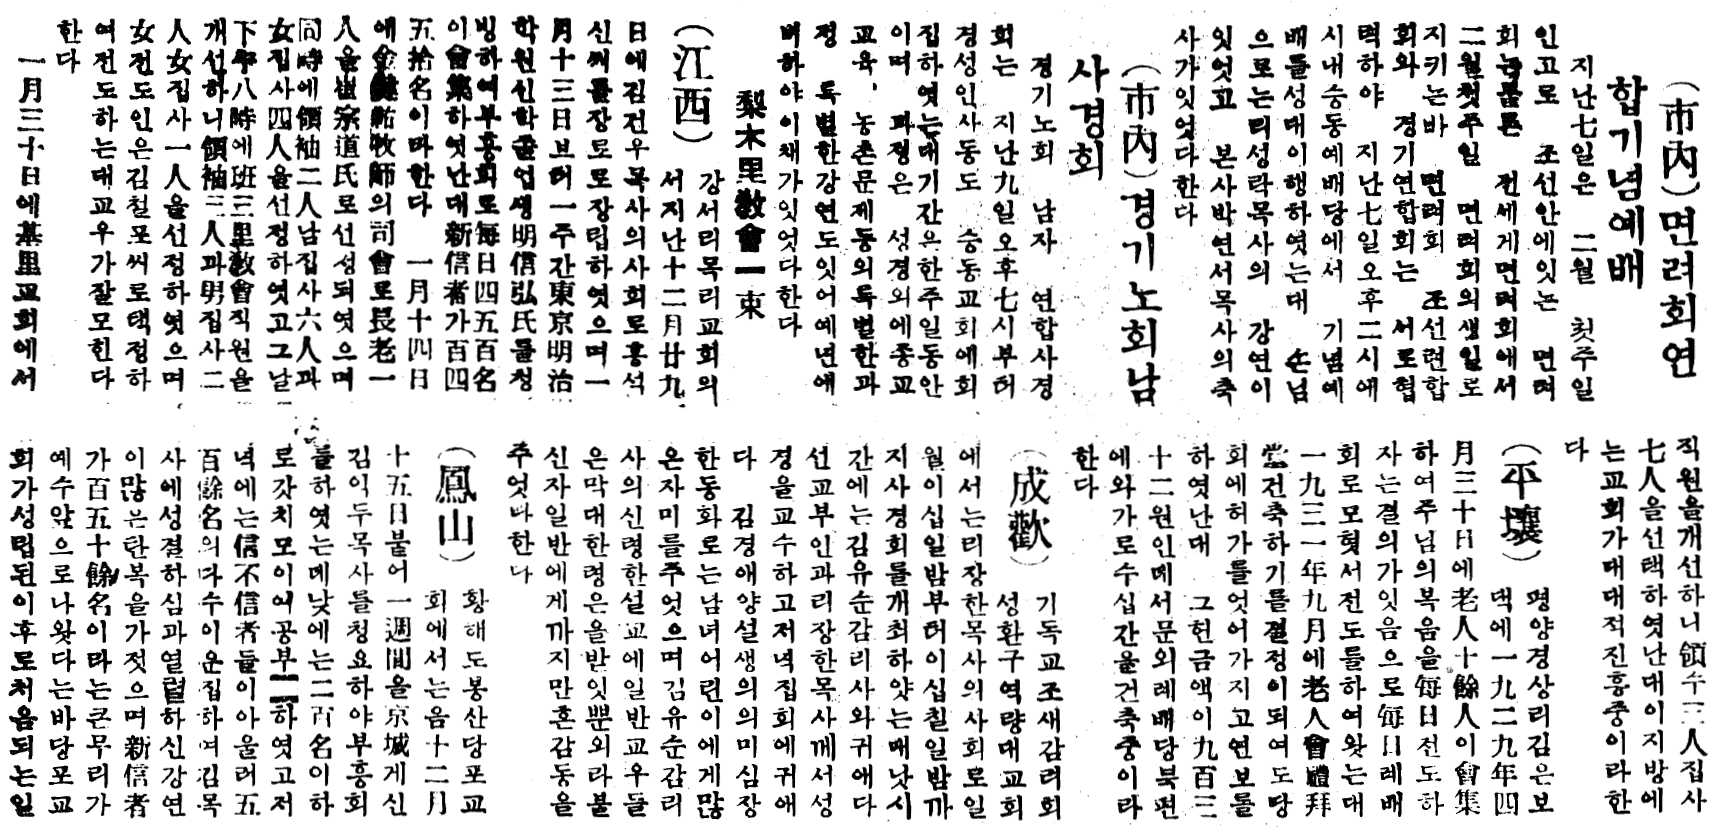 (市內)면려회연
합기념예배
지난七일은 二월 첫주일
인고로 조선안에잇는 면려
회는물론 전세게면려회애서
二월첫주일 면려회의생일로
지키는바 면려회 조선련합
회와 경기연합회는 서로협
력하야 지난七일오후二시애
시내승동예배당에서 기념예
배를성대이행하엿는대 손넘
으로는리성락목사의 강연이
잇엇고 본사박연서목사의축
사가잇엇다한다
(市內)경기노회남
사경회
경기노회 남자 연합사경
회는 지난九일오후七시부터
경성인사동도 승동교회애회
집하엿는대기간은한주일동안
이며 과정은 성경외에종교
교육, 농촌문제등의특별한과
정 특별한강연도잇어예년애
비하야이채가잇엇다한다
梨木里敎會一束
(江西) 강서리목리교회의
서지난十二月廿九
日애김건우목사의사회로홍석
신씨를장로로장립하엿으며一
月十三日브터一주간東京明治
학원신학졸업생明信弘氏를청
빙하여부흥회로每日四五百名
이會集하엿난대新信者가百四
五拾名이라한다 一月十四日
애金健祐牧師의司會로長老一
人을崔宗道氏로선성되엿으며
同時에領袖二人남집사六人과
女집사四人을선정하엿고그날
下午八時에班三里敎會직원을
개선하니領袖三人과男집사二
人女집사一人을선정하엿으며
女전도인은김철포씨로택정하
여전도하는대교우가잘모힌다
한다
一月三十日에基里교회에서
직원을개선하니領수三人집사
七人을선택하엿난대이지방에
는교회가대대적진흥중이라한
다
(平壤) 평양경상리김은보
댁에一九二九年四
月三十日에老人十餘人이會集
하여주님의복음을每日전도하
자는결의가잇음으로每日레배
회로모혓서전도를하여왓는대
一九三一年九月에老人會禮拜
堂건축하기를결정이되여도당
회에허가를엇어가지고연보를
하엿난대 그헌금액이九百三
十二원인데서문외레배당북편
에와가로수십간을건축중이라
한다
(成歡) 기독교조새감려회
성환구역량대교회
에서는리장한목사의사회로일
월이십일밤부터이십칠일밤까
지사경회를개최하얏는매낫시
간에는김유순감리사와귀애다
선교부인과리장한목사께서성
경을교수하고저녁집회에귀애
다 김경애양설생의의미심장
한동화로는남녀어린이에게많
은자미를주엇으며김유순감리
사의신령한설교에일반교우들
은막대한령은을받잇뿐외라불
신자일반에게까지만흔감동을
주엇다한다
(鳳山) 황해도봉산당포교
회에서는음十二月
十五日불어一週間을京城게신
김익두목사를청요하야부흥회
를하엿는데낮에는二百名이하
로갓치모이여공부하엿고저
녁에는信不信者들이아울러五
百餘名의다수이운집하여김목
사에성결하심과열렬하신강연
이많은탄복을가젓으며新信者
가百五十餘名이라는큰무리가
예수앞으로나왓다는바당포교
회가성립된이후로처음되는일